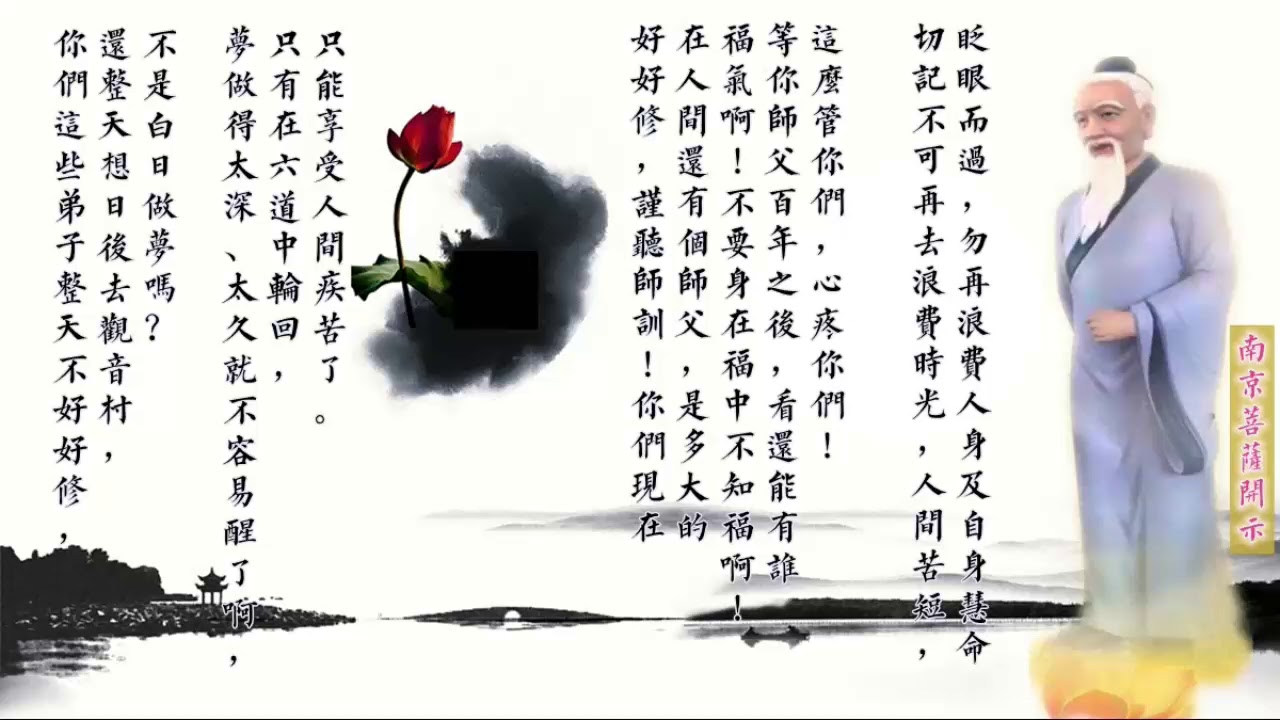 你們這些弟子整天不好好修，
還整天想日後去觀音村，
不是白日做夢嗎？
夢做得太深、太久就不容易醒了啊，
只有在六道中輪回，
只能享受人間疾苦了。
好好修，謹聽師訓！你們現在
在人間還有個師父，是多大的
福氣啊！不要身在福中不知福啊！
等你師父百年之後，看還能有誰
這麼管你們，心疼你們！
切記不可再去浪費時光，人間苦短，
眨眼而過，勿再浪費人身及自身慧命
南京菩薩開示